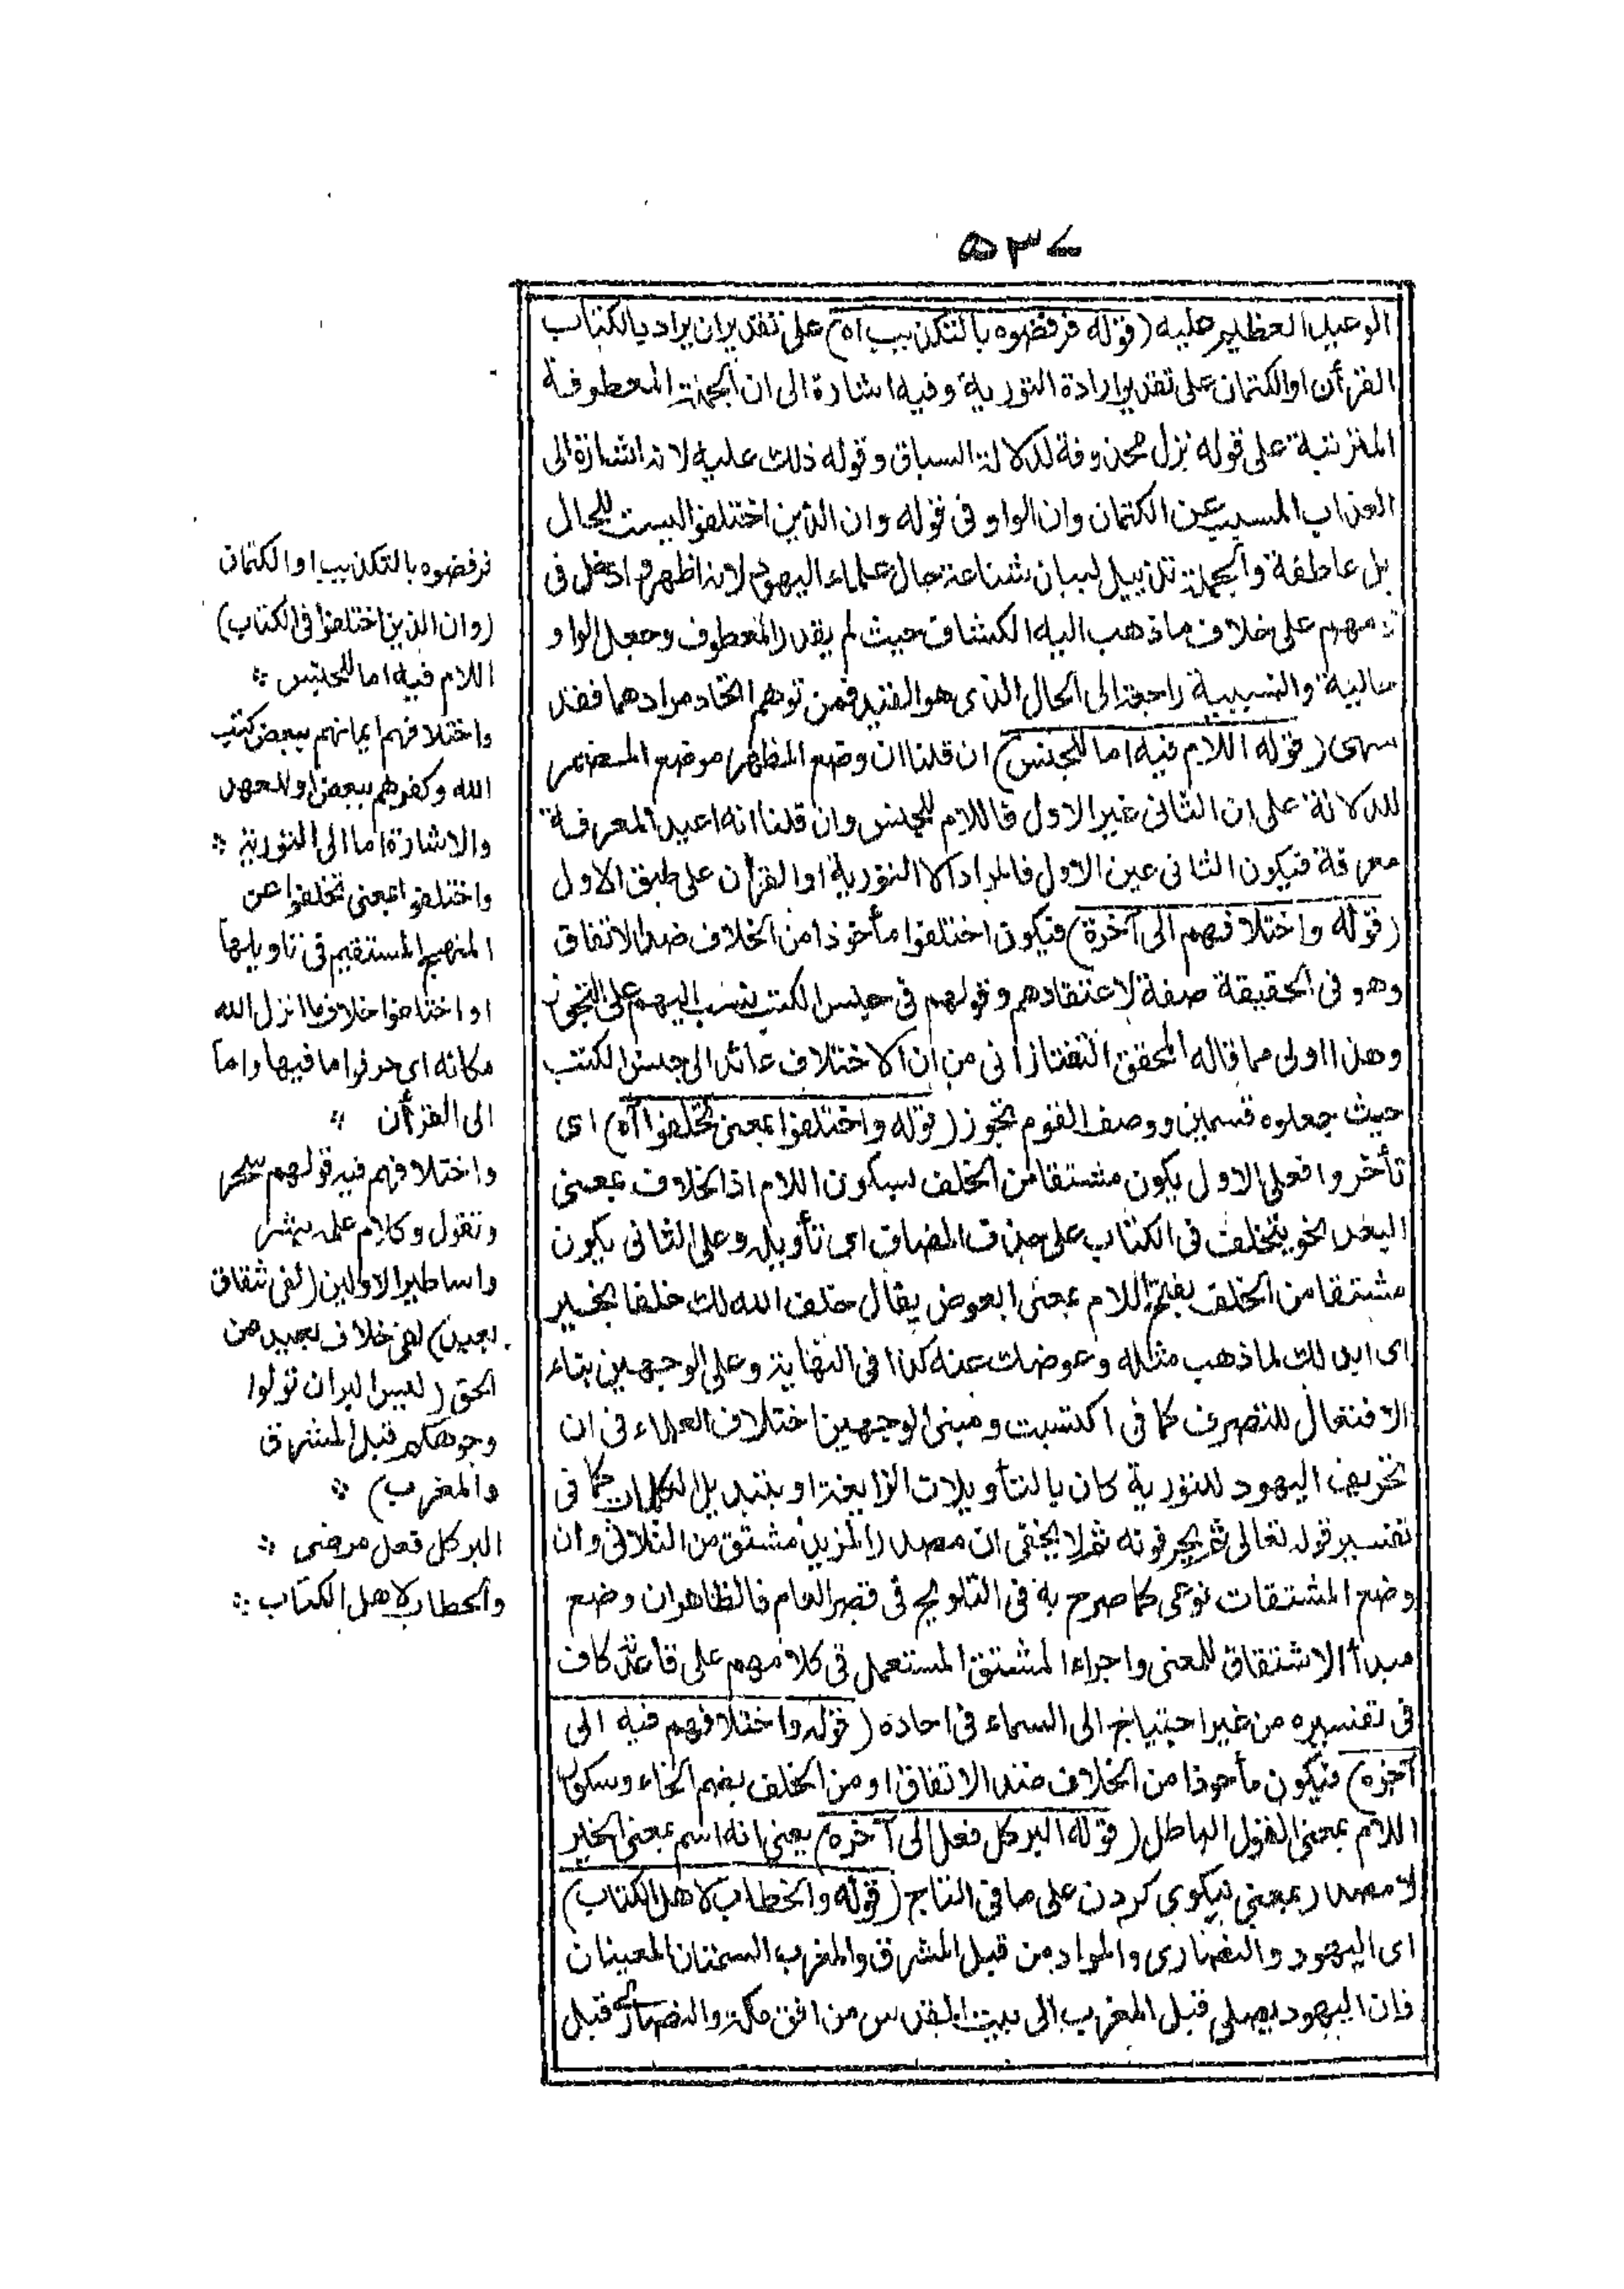 ۵۳۷
الوعيد العظيم عليه (قوله فرفضوه بالتكذيب اه) على تقدير ان يراد بالكتاب
القرأن او الكتمان على تقدير ارادة التورية وفيه اشارة الى ان الجملة المعطوفة
المترتبة على قوله نزل محذوفة لدلالة السباق وقوله ذلك عليه لانه اشارة الى
العذاب المسبب عن الكتمان وان الواو فى قوله وان الذين اختلفوا ليست للحال
بل عاطفة والجملة تذييل لبيان شناعة حال علماء اليهود لانه اظهر وادخل فى
ذمهم على خلاف ما ذهب اليه الكشاف حيث لم يقدر المعطوف وجعل الواو
حالية والسببية راجعة الى الحال الذى هو القيد فمن توهم اتحاد مرادهما فقد
سهى (قوله اللام فيه اما للجنس) ان قلنا ان وضع المظهر موضع المضمر
للدلالة على ان الثانى غير الاول فاللام للجنس وان قلنا انه اعيد المعرفة
معرفة فيكون الثانى عين الاول فالمراد الا التورية او القرأن على طبق الاول
(قوله واختلافهم الى آخرة) فيكون اختلفوا مأخوذا من الخلاف ضد الاتفاق
وهو فى الحقيقة صفة لاعتقادهم وقولهم فى جنس الكتب نسب اليهم على التجوز
وهذا اولى مما قاله المحقق التفتازانى من ان الاختلاف عائد الى جنس الكتب
حيث جعلوه قسمين ووصف القوم تجوز (قوله واختلفوا بمعنى تخلفوا آه) اى
تأخروا فعلى الاول يكون مشتقا من الخلف لسكون اللام اذ الخلاف بمعنى
البعد الخو يتخلف فى الكتاب على حذف المضاف اى تأويله وعلى الثانى يكون
مشتقا من الخلف بفتح اللام بمعنى العوض يقال خلف الله لك خلفا بخير
اى ابدلك لما ذهب مثله وعوضك عنه كذا فى النهاية وعلى الوجهين بناء
الافتعال للتصرف كما فى اكتسبت ومبنى الوجهين اختلاف العلماء فى ان
تحريف اليهود للتورية كان بالتأويلات الزايغة او بتبديل الكلمات كما فى
تفسير قوله تعالى ثم يحرفونه ثم لا يخفى ان مصدر المزيد مشتق من الثلاثى وان
وضع المشتقات نوعى كما صرح به فى التلويح فى قصر العام فالظاهر ان وضع
مبدأ الاشتقاق للمعنى واجراء المشتق المستعمل فى كلامهم على قاعدة كاف
فى تفسيره من غير احتياج الى السماء فى احاده (قوله واختلافهم فيه الى
آخره) فيكون مأخوذا من الخلاف ضد الاتفاق او من الخلف بضم الخاء وسكون
اللام بمعنى القول الباطل (قوله البر كل فعل الى آخره) يعنى انه اسم بمعنى الخير
لا مصدر بمعنى نيكوى كردن على ما فى التاج (قوله والخطاب لاهل الكتاب)
اى اليهود والنصارى والمراد من قبل المشرق والمغرب السمتان المعينان
فان اليهود يصلى قبل المغرب الى بيت المقدس من افق مكة والنصارى قبل
فرفضوه بالتكذيب او الكتمان
(وان الذين اختلفوا فى الكتاب)
اللام فيه اما للجنس ؞
واختلافهم ايمانهم ببعض كتب
الله وكفرهم ببعض او للعهد
والاشارة اما الى التورية ؞
واختلفوا بمعنى تخلفوا عن
المنهج المستقيم فى تاويلها
او اختلفوا خلاف ما انزل الله
مكانه اى حرفوا ما فيها واما
الى القرأن ؞
واختلافهم فيه قولهم سحر
وتقول وكلام علمه بشر
واساطير الاولين (لفى شقاق
بعيد) لفى خلاف بعيد من
الحق (ليس البر ان تولوا
وجوهكم قبل المشرق
والمغرب) ؞
البر كل فعل مرضى ؞
والخطاب لاهل الكتاب ؞